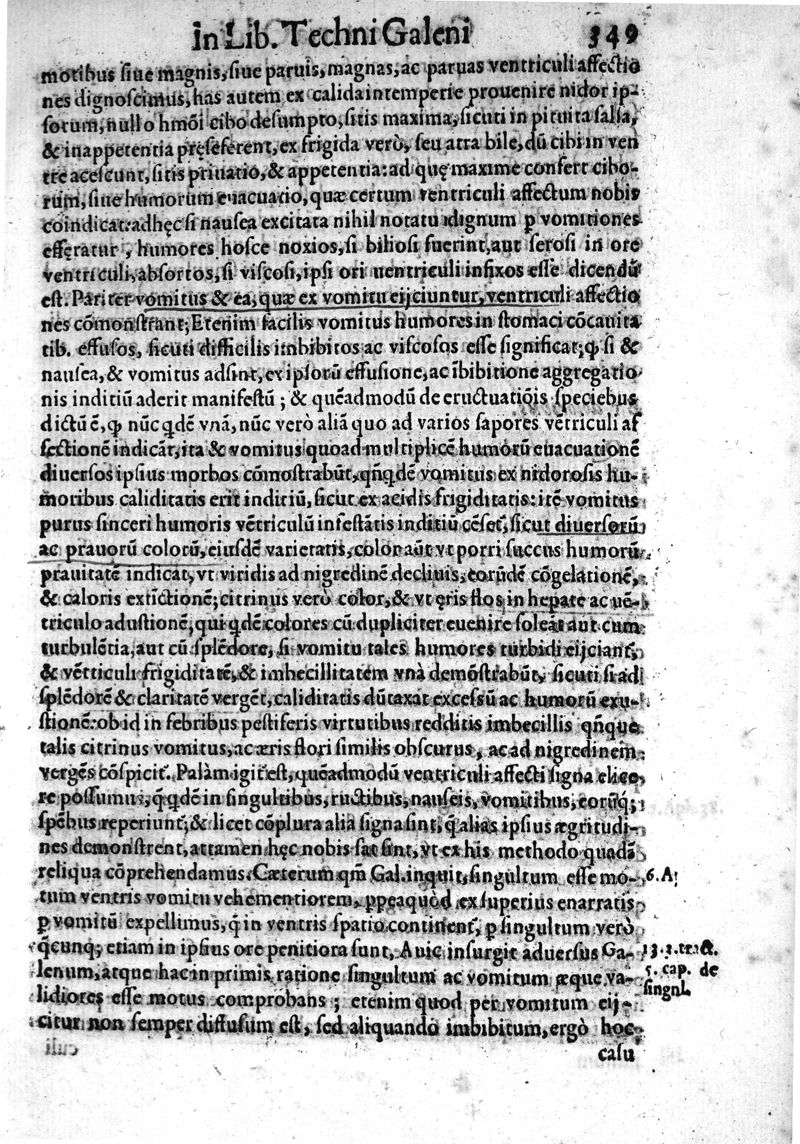 In Lib. Techni Galeni 349
motibus siue magnis, siue paruis, magnas, ac paruas ventriculi affectio
nes dignoscimus, has autem ex calida intemperie prouenire nidor ip-
sorum, nullo hmōi cibo desumpto, sitis maxima, sicuti in pituita salsa,
& inappetentia pręseferent, ex frigida verò, seu atra bile, dū cibi in ven
tre acescunt, sitis priuatio, & appetentia: ad quę maxime confert cibo-
rum, siue humorum euacuatio, quæ certum ventriculi affectum nobis
coindicat: adhęc si nausea excitata nihil notatu dignum ꝑ vomitiones
efferatur, humores hosce noxios, si biliosi fuerint, aut serosi in ore
ventriculi, absortos, si viscosi, ipsi ori uentriculi infixos esse dicendū
est. Pariter vomitus & ea, quæ ex vomitu eijciuntur, ventriculi affectio
nes cōmonstrant; Etenim facilis vomitus humores in stomaci cōcauita
tib. effusos, sicuti difficilis imbibitos ac viscosos esse significat; ꝙ si &
nausea, & vomitus adsint, ex ipsorū effusione, ac ībibitione aggregatio
nis inditiū aderit manifestū; & quēadmodū de eructuatiōis speciebus
dictū ē, ꝙ nūc qdē vnā, nūc verò aliā quo ad varios sapores vētriculi af
fectionē indicāt, ita & vomitus quoad multiplicē humorū euacuationē
diuersos ipsius morbos cōmostrabūt, qn̄qdē vomitus ex nidorosis hu-
moribus caliditatis erit inditiū, sicut ex acidis frigiditatis: itē vomitus
purus sinceri humoris vētriculū infestātis inditiū cēset, sicut diuersorū
ac prauorū colorū, eiusdē varietatis, color aūt vt porri succus humorū
prauitatē indicat, vt viridis ad nigredinē decliuis, eorūdē cōgelationē,
& caloris extīctionē; citrinus verò color, & vt ęris flos in hepate ac uē-
triculo adustionē; qui qdē colores cū dupliciter euenire soleāt aut cum
turbulētia, aut cū splēdore, si vomitu tales humores turbidi eijciant,
& vētriculi frigiditatē, & imbecillitatem vnà demōstrabūt, sicuti si ad
splēdorē & claritatē vergēt, caliditatis dūtaxat excessū ac humorū exu-
stionē: ob id in febribus pestiferis virtutibus redditis imbecillis qn̄que
talis citrinus vomitus, ac æris flori similis obscurus, ac ad nigredinem
vergēs cōspicit. Palàm igit est, quēadmodū ventriculi affecti signa elice
re possumus, q̄ qdē in singultibus, ructibus, nauseis, vomitibus, eorūq;
spēbus reperiunt; & licet cōplura alia signa sint, q̄ alias ipsius ægritudi-
nes demonstrent, attamen hęc nobis sat sint, vt ex his methodo quadā
reliqua cōprehendamus. Cæterum qm̄ Gal. inquit, singultum esse mo-
6. A
tum ventris vomitu vehementiorem, ꝓpeaquod ex superius enarratis
ꝑ vomitū expellimus, q̄ in ventris spatio continent, ꝑ singultum verò
q̄cunq; etiam in ipsius ore penitiora sunt, Auic insurgit aduersus Ga-
13. 3. tract.
lenum, atque hac in primis ratione singultum ac vomitum æque va-
5. cap. de
lidiores esse motus comprobans; etenim quod per vomitum eij-
singul.
citur non semper diffusum est, sed aliquando imbibitum, ergò hoc
casu